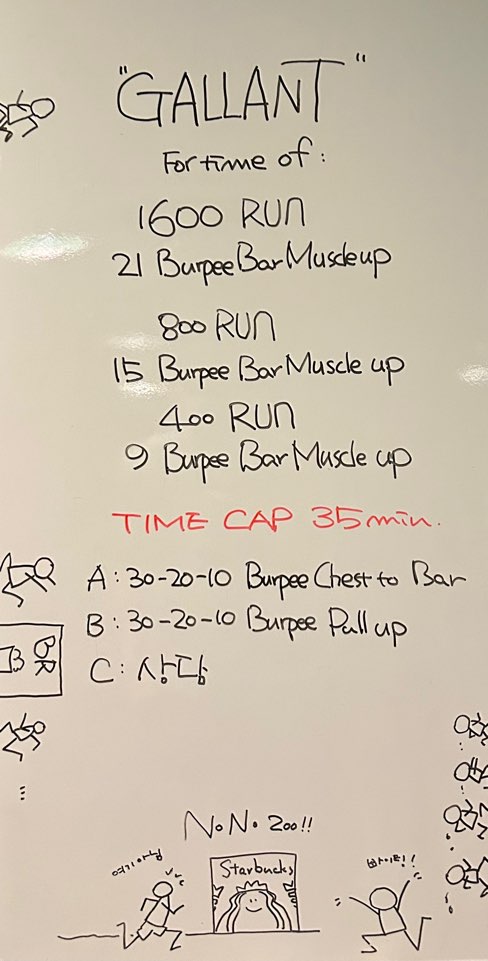 "GALLANT"
For time of :
1600 RUN
21 Burpee Bar Muscle up
800 RUN
15 Burpee Bar Muscle up
400 RUN
9 Burpee Bar Muscle up
TIME CAP 35min.
A : 30-20-10 Burpee Chest to Bar
B : 30-20-10 Burpee Pull up
C : 상담
No. No. 200!!
여기아님
Starbucks